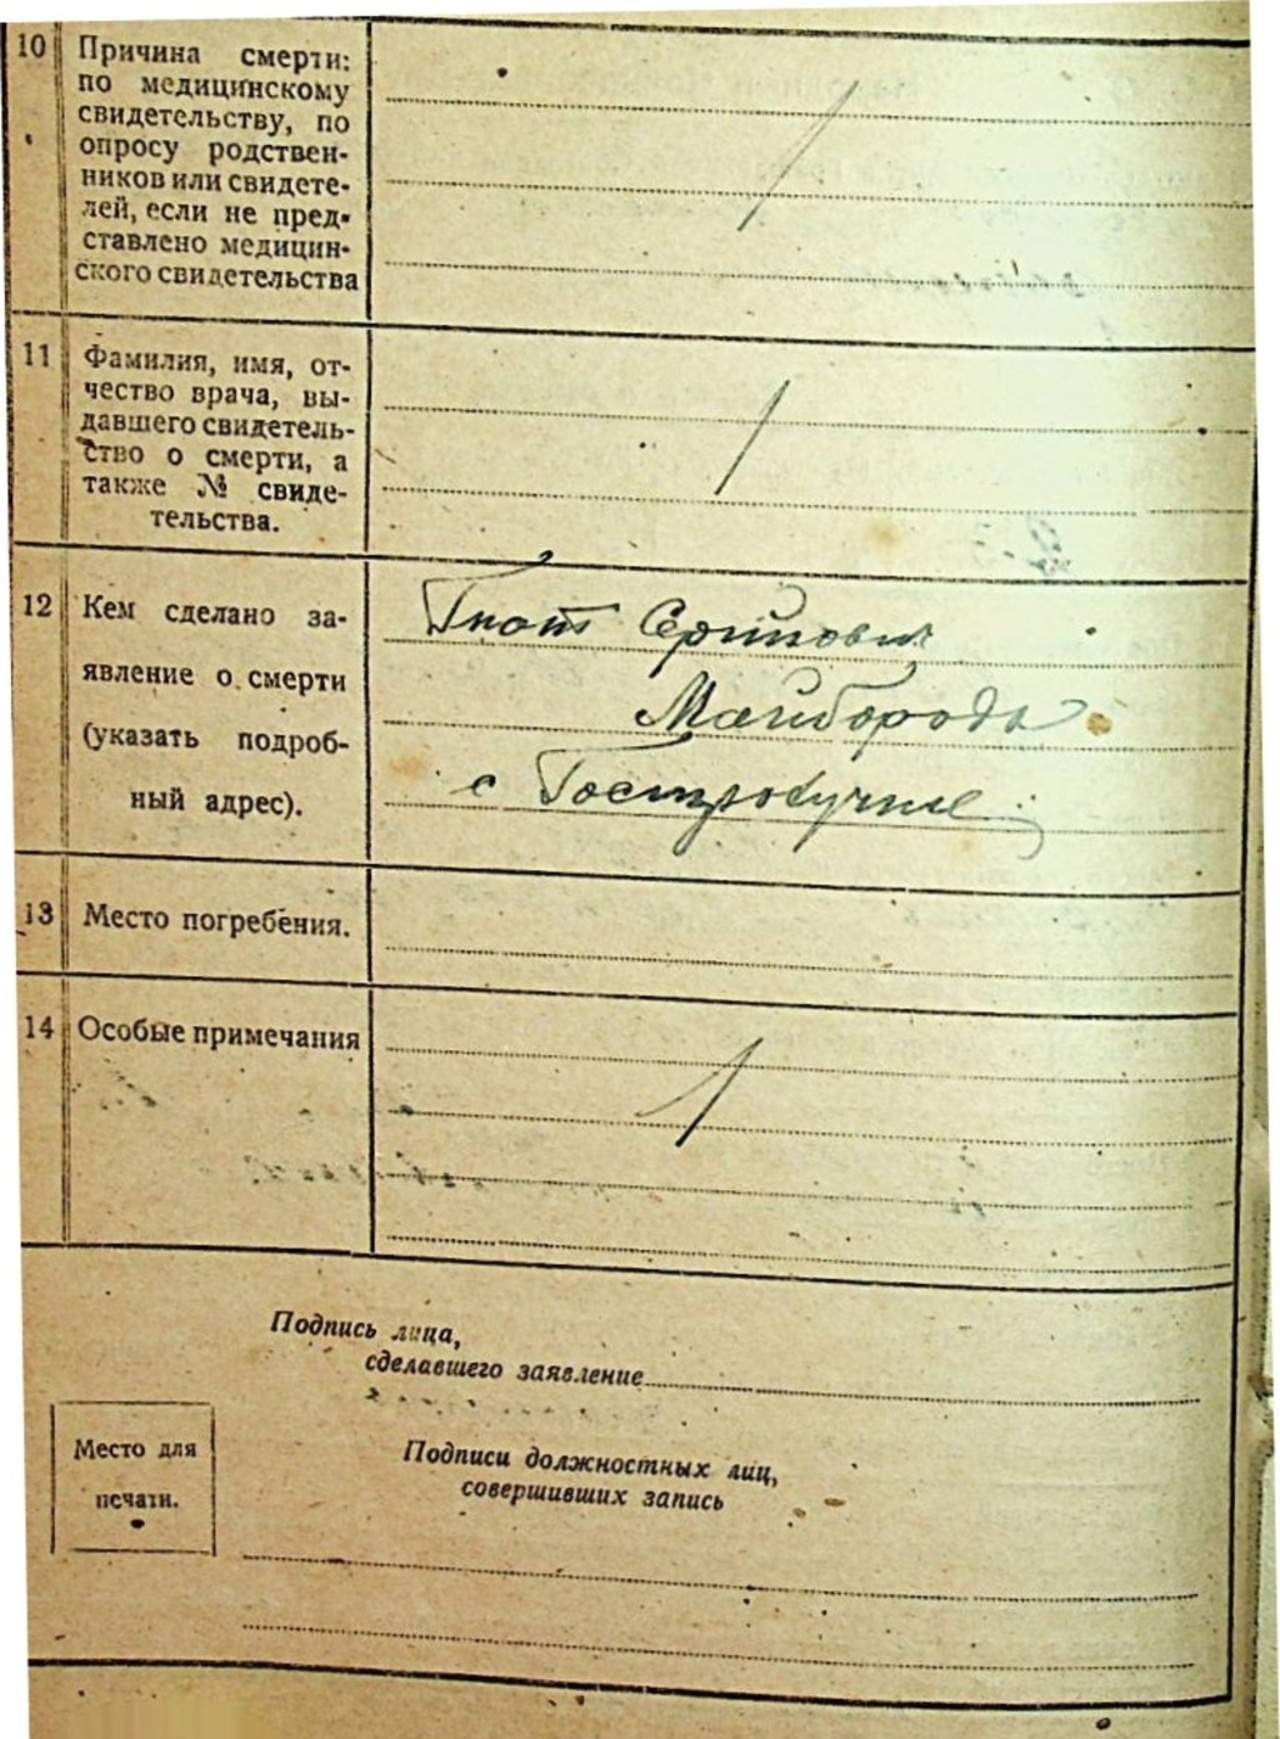 10 Причина смерти:
по медицинскому
свидетельству, по
опросу родствен-
ников или свидете-
лей, если не пред-
ставлено медицин-
ского свидетельства
11 Фамилия, имя, от-
чество врача, вы-
давшего свидетель-
ство о смерти, а
также № свиде-
тельства.
12 Кем сделано за-
явление о смерти
(указать подроб-
ный адрес).
Гнат
Майборода
с
13 Место погребения.
14 Особые примечания
Подпись лица,
сделавшего заявление
Место для
печати.
Подписи должностных лиц,
совершивших запись